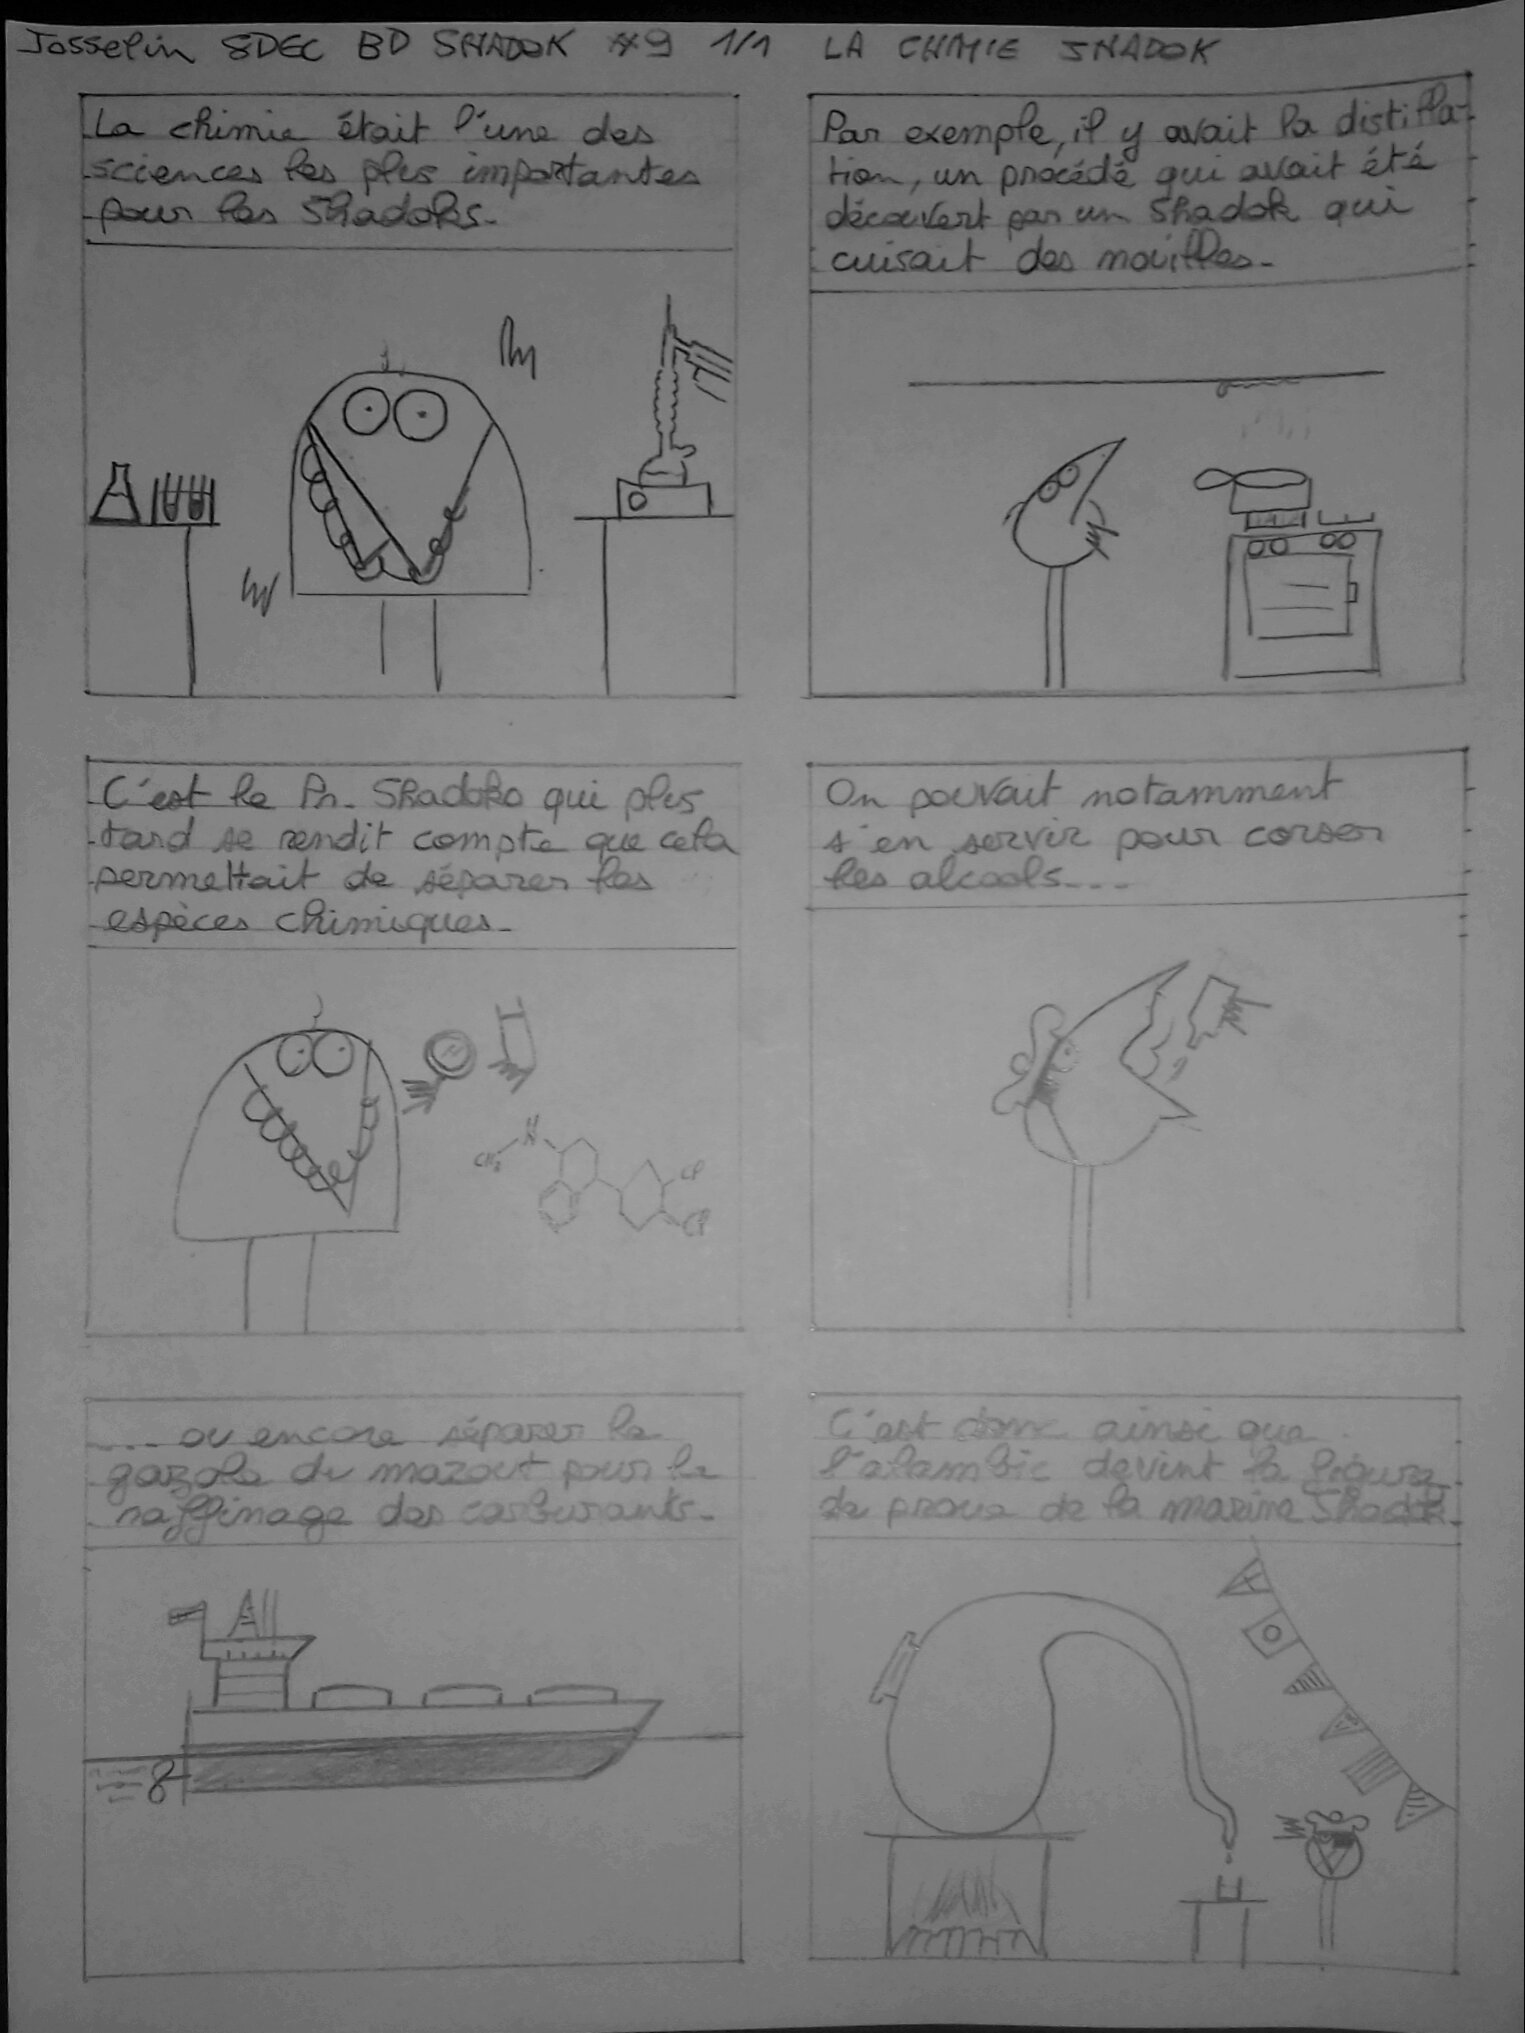 Josselin SDEC BD SHADOK #9 1/1 LA CHIMIE SHADOK
La chimie était l'une des
sciences les plus importantes
pour les Shadoks.
Par exemple, il y avait la distilla-
tion, un procédé qui avait été
découvert par un Shadok qui
cuisait des nouilles.
C'est le Pr. Shadoko qui plus
tard se rendit compte que cela
permettait de séparer les
espèces chimiques.
CH3 N
H
Cl
Cl
On pouvait notamment
s'en servir pour corser
les alcools...
... ou encore séparer le
gazole du mazout pour le
raffinage des carburants.
C'est donc ainsi que
l'alambic devint la figure
de proue de la marine Shadok.